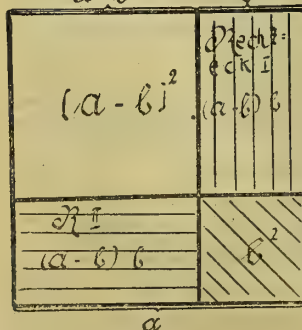 (a - b)²
Recht=
eck I
(a-b) b
R II
(a-b) b
b²
a